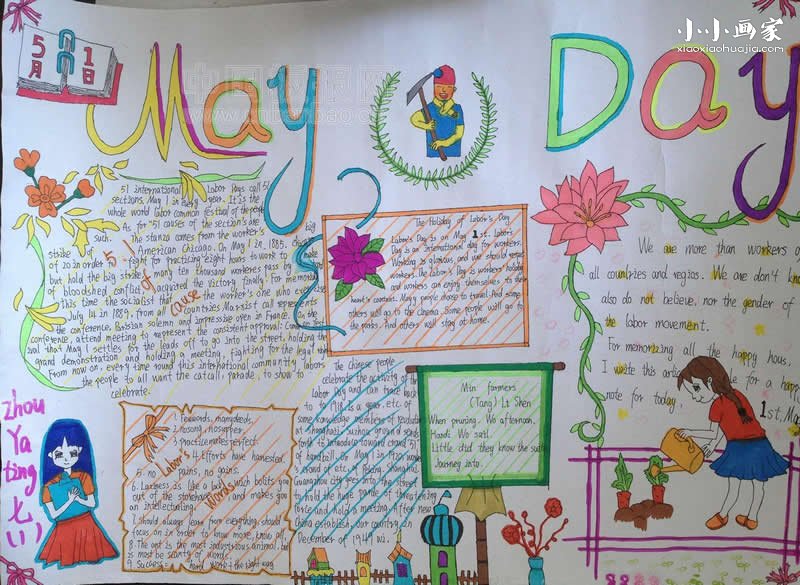 小小画家
xiaoxiaohuajia.com
5月1日
May Day
51 international Labor Days call 51
sections. May 1 in every year. It is the
whole world labor common festival of the people
As for "51 causes of the section's are
such. The stanza comes from the worker's big
strike of American Chicago. On May 1 in 1885, Chicago
of 20 in order "fight for practicing eight hours to work to make
but hold the big strike, many ten thousand workeres pass by
of bloodshed conflict, acquired the victory finally. For memorizing
this time the socialist that the worker's one who exercise
July 14 in 1889, from all countries Marxist call represents
the conference, Parisian solemn and impressive open in France. On the
conference, attend meeting to represent the consistent approval: Common
that May 1 settles for the leads off to go into the street, holding the
grand demonstration and holding a meeting, fighting for the legal
From now on, every time round this international community labors
the people to all want the catcall, parade, to show to
celebrate.
51 of cause
The Holiday of Labor's Day
Labor's Day is on May 1st. Labor's
Day is an international day for workers.
Working is glorious and we should respect
workers. The Labor's Day is workers' holiday
and workers can enjoy themselves to their
heart's content. Many people choose to travel. And some
others will go to the cinema. Some people will go to
the parks. And others will stay at home.
We are more than workers of
all countries and regios. We are don't know
also do not believe, nor the gender of
the labor movement.
For memorizing all the happy hous,
I write this article for a happy
note for today,
1st. May
zhou
Ya
ting
七(1)
1. Fewwords, manydeeds.
2. Nosong, nosupper.
3. Practice makes perfect.
4. Efforts have harvested.
5. no pains, no gains.
6. Laziness is like a lock, which bolts you
out of the storehouse and makes you
an intellectual
7. should always learn from everything, should
focus on in order to know more, know all.
8. The ant is the most industrious animal, but
is most be scanty of words.
9. Success = hard work + the right way
Labor's Words
The chinese people
celebrate the activity of the
Labor Day and can trace back
to 1918 is a year, etc of
some knowledge members of revolution
in Shanghai, Suzhou,
forth to immediate toward crowd "51"
of handbill. On May 1 in 1920, worker's
crowd of etc. Peking, Shanghai
Guangzhou city goes into the street
to hold the huge parade, threatening
force and hold a meeting. After new
China establish, our country in
December of 1949 wi.
Min farmers
(Tang) Li Shen
When pruning. Wo afternoon,
Handi Wo soil.
Little did they know the
Journey into.